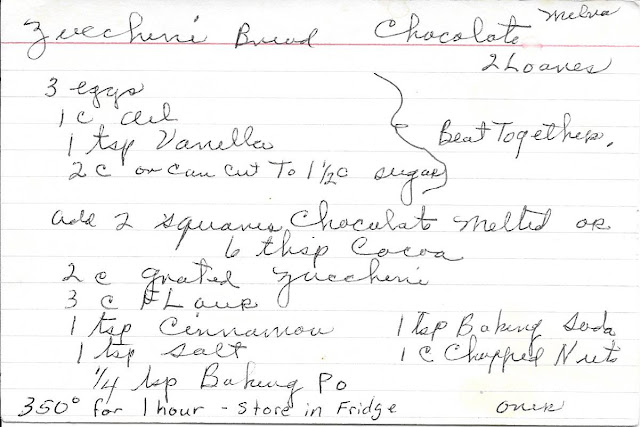 Zucchini Bread Chocolate Melva
2 Loaves
3 eggs
1 c oil
1 tsp Vanilla
2 c or can cut To 1 1/2 c sugar
Beat Together.
add 2 squares Chocolate melted or
6 tbsp Cocoa
2 c grated Zucchini
3 c FLour
1 tsp Cinnamon 1 tsp Baking Soda
1 tsp salt 1 c Chopped Nuts
1/4 tsp Baking Po
350° for 1 hour - Store in Fridge over